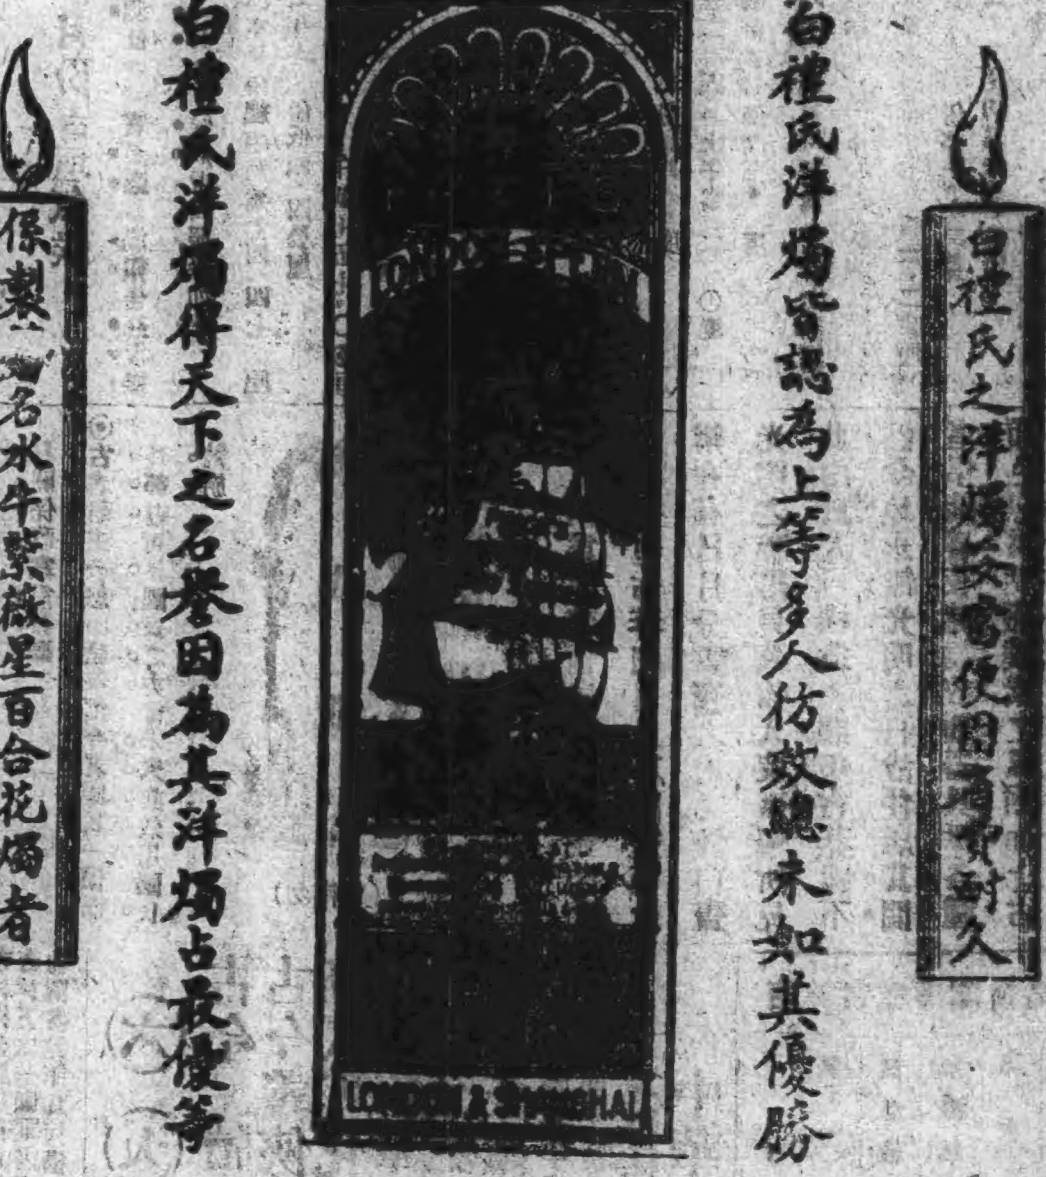 白禮氏之洋燭安當便用有實耐久
白禮氏洋燭皆認為上等多人仿效總未如其優勝
LONDON & SHANGHAI
白禮氏洋燭得天下之名譽因為其洋燭占最優等
係製名水牛紫薇星百合花燭者